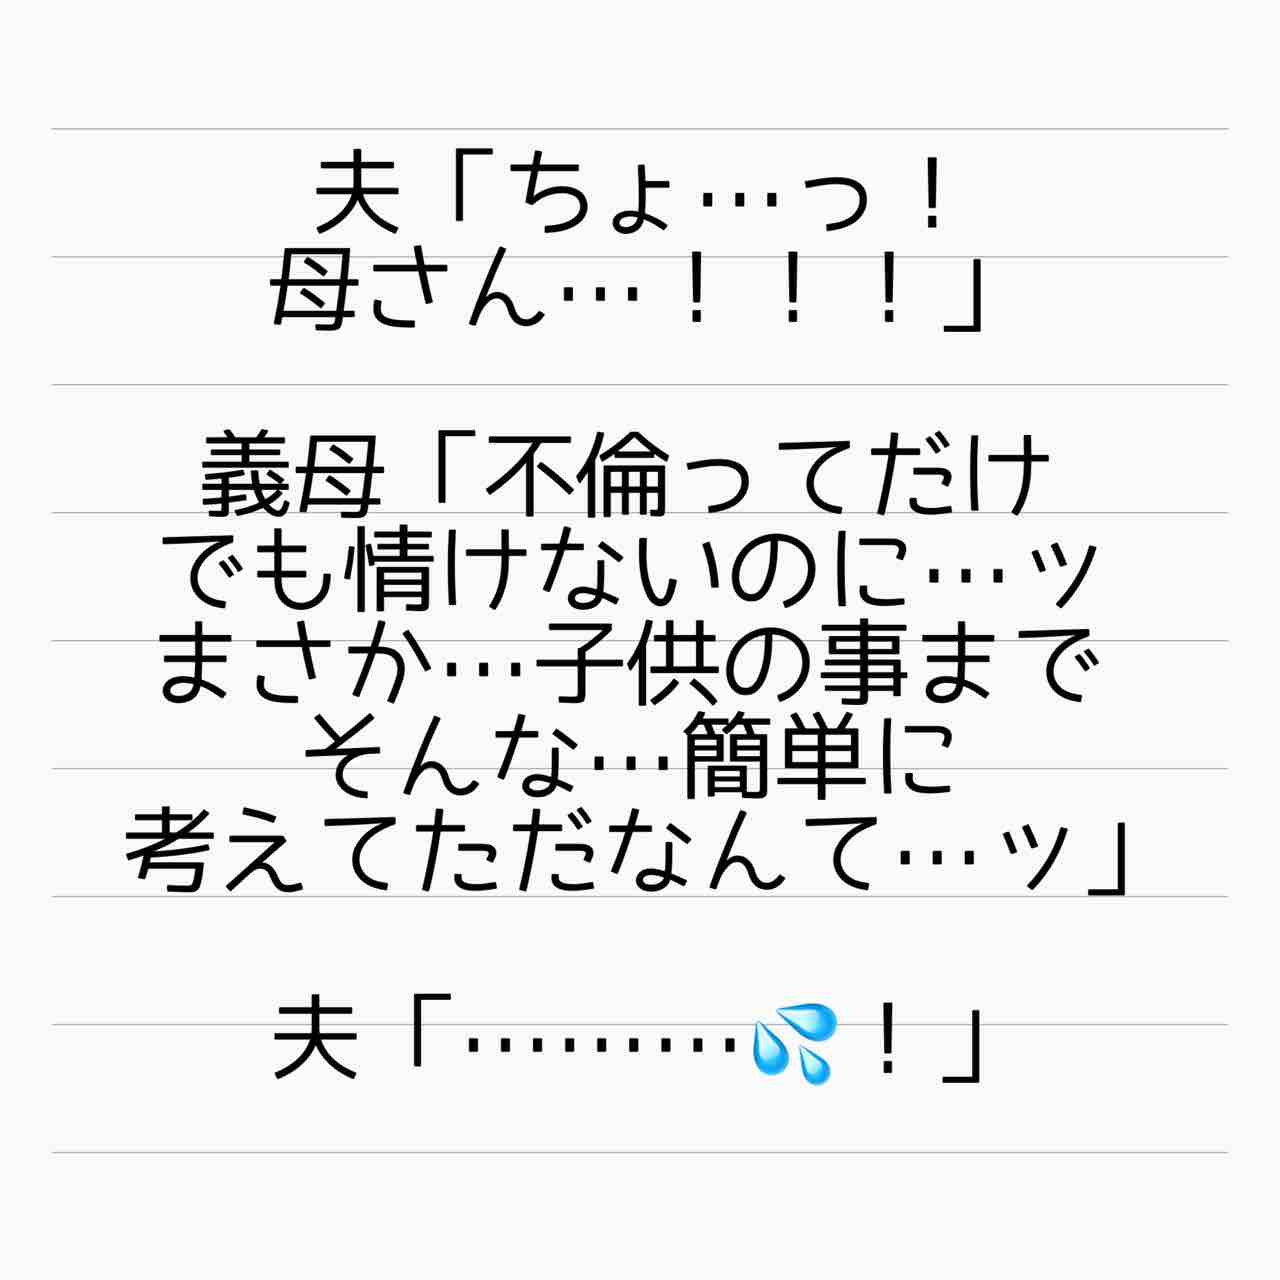 夫「ちょ…っ！
母さん…！！！」
義母「不倫ってだけ
でも情けないのに…ッ
まさか…子供の事まで
そんな…簡単に
考えてただなんて…ッ」
夫「………💦！」